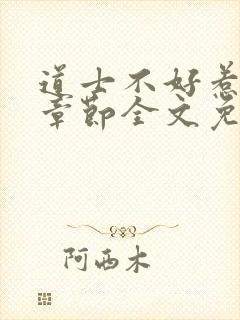 道士不好惹
章节全文免
阿西木